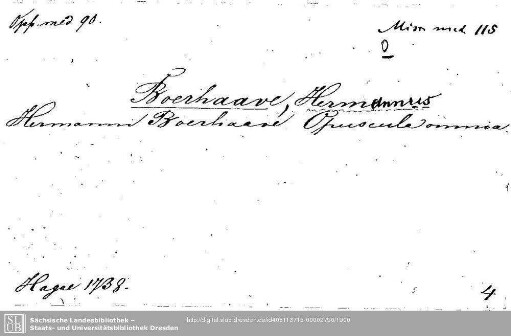 Opp. med 90.
Misc med. 115
0
Boerhaave, Hermannus
Hermanni Boerhaave Opuscula omnia.
Hagae 1738.
4
SLUB
Sächsische Landesbibliothek –
Staats- und Universitätsbibliothek Dresden